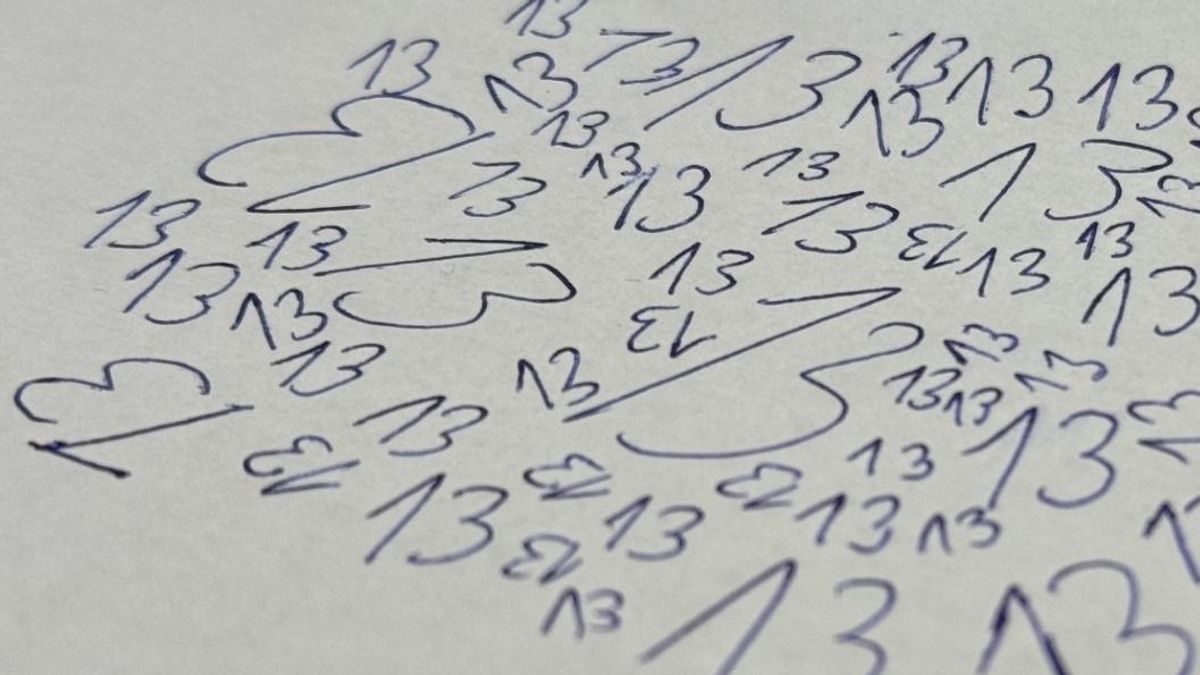 13
13 13 13 13 13 13 13
13 13 13
13 13 13 13 13 13
13 13 13 13 13
13 13 13 13 13 13
13 13 13 13
13 13 13 13
13 13 13 13 13
13 13 13 13
13 13 13 13 13
13 13
13 13 13